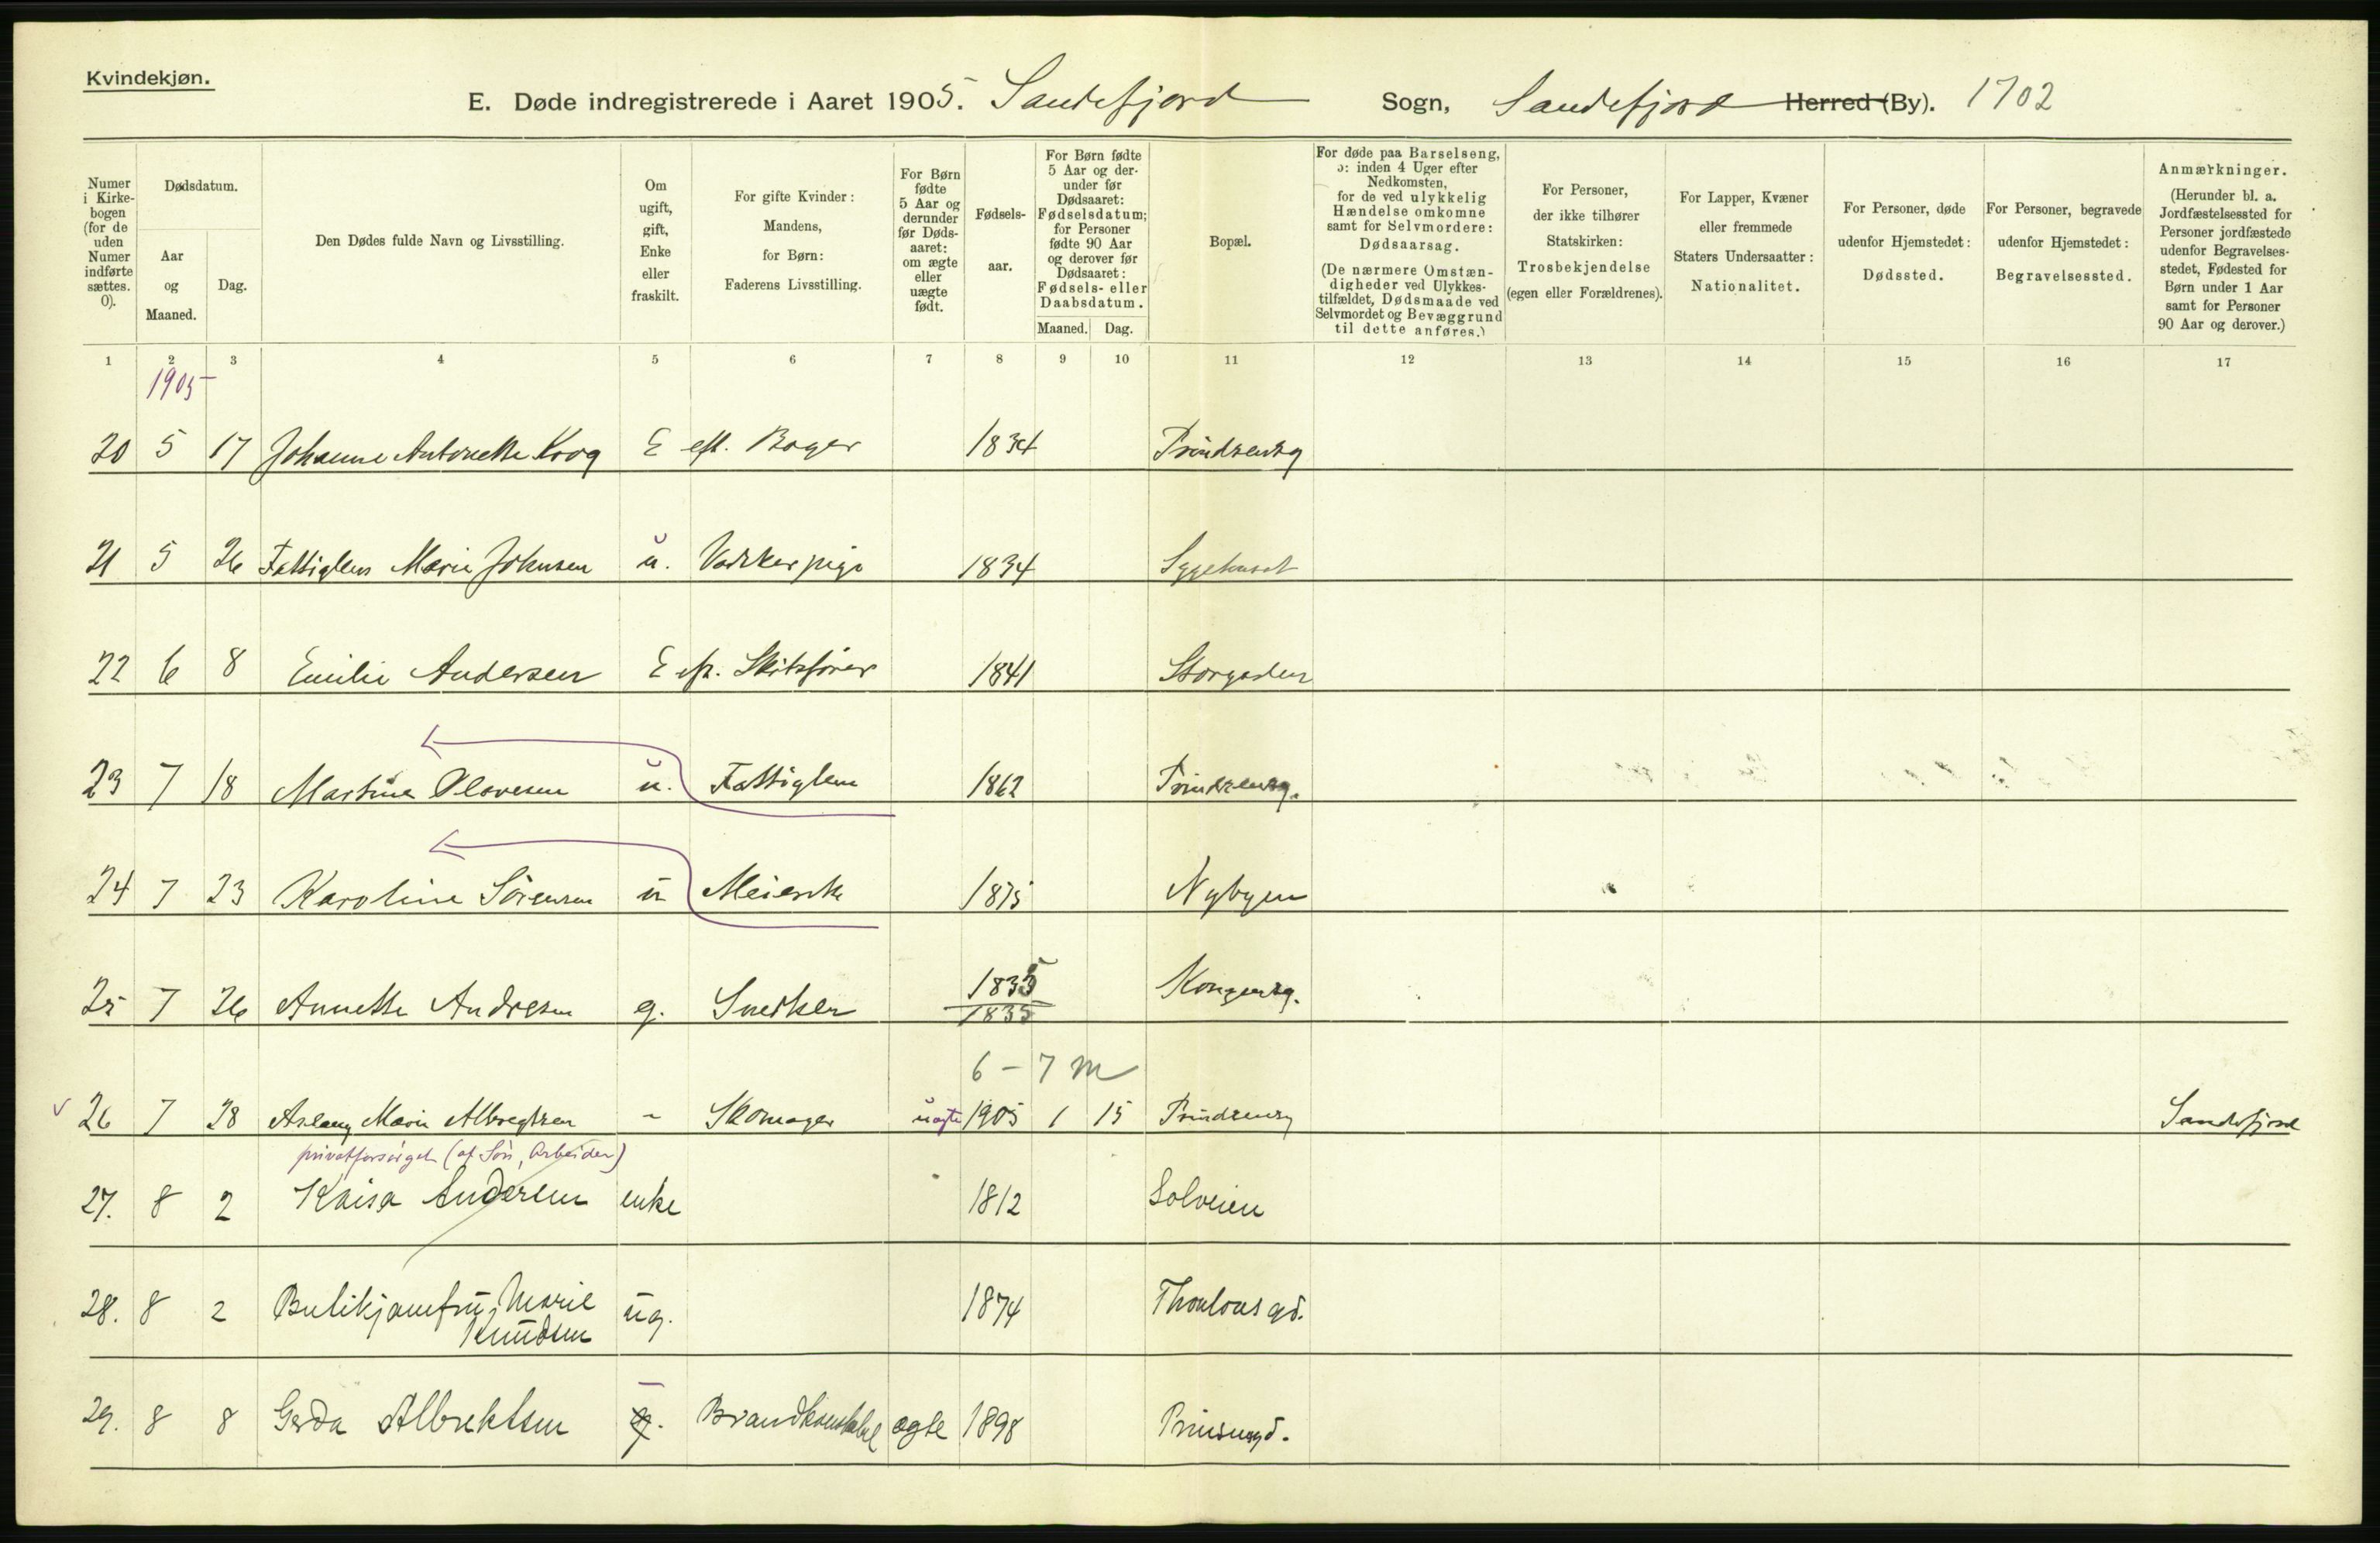 Kvindekjøn.
E. Døde indregistrerede i Aaret 1905. Sandefjord Sogn, Sandefjord Herred (By). 1702
Numer i Kirkebogen (for de uden Numer indførte sættes. 0).
Dødsdatum.
Aar og Maaned.
Dag.
Den Dødes fulde Navn og Livsstilling.
Om ugift, gift, Enke eller fraskilt.
For gifte Kvinder: Mandens, for Børn: Faderens Livsstilling.
For Børn fødte 5 Aar og derunder før Dødsaaret: om ægte eller uægte født.
Fødselsaar.
For Børn fødte 5 Aar og derunder før Dødsaaret: Fødselsdatum; for Personer fødte 90 Aar og derover før Dødsaaret: Fødsels- eller Daabsdatum.
Maaned. Dag.
Bopæl.
For døde paa Barselseng, ɔ: inden 4 Uger efter Nedkomsten, for de ved ulykkelig Hændelse omkomne samt for Selvmordere: Dødsaarsag.
(De nærmere Omstændigheder ved Ulykkestilfældet, Dødsmaade ved Selvmordet og Bevæggrund til dette anføres.)
For Personer, der ikke tilhører Statskirken: Trosbekjendelse (egen eller Forældrenes).
For Lapper, Kvæner eller fremmede Staters Undersaatter: Nationalitet.
For Personer, døde udenfor Hjemstedet: Dødssted.
For Personer, begravede udenfor Hjemstedet: Begravelsessted.
Anmærkninger.
(Herunder bl. a. Jordfæstelsessted for Personer jordfæstede udenfor Begravelsesstedet, Fødested for Børn under 1 Aar samt for Personer 90 Aar og derover.)
1 2 3 4 5 6 7 8 9 10 11 12 13 14 15 16 17
1905
20 5 17 Johanne Antonette Krog E eft. Bager 1834 Prindsensg
21 5 26 Fattiglem Marie Johnsen u. Vaskerpige 1834 Sygehuset
22 6 8 Emilie Andersen E eft. Skibsfører 1841 Storgaden
23 7 18 Martine Olavesen u. Fattiglem 1862 Prindsensg.
24 7 23 Karoline Sörensen u Meierske 1875 Nybyen
25 7 26 Annette Andresen g. Snedker 1835 Kongensg.
1835
6 - 7 m
26 7 28 Aslaug Marie Albregtsen - Skomager uægte 1905 1 15 Prindsensg Sandefjord
privatforsörget (af Sön, Arbeider)
27. 8 2 Kaisa Andersen enke 1812 Solveien
28. 8 2 Butikjomfru, Marie ug. 1874 Thaulows gd.
Knudsen
29. 8 8 Gerda Albrektsen g. Brandkonstabel ægte 1898 Prinsensgd.